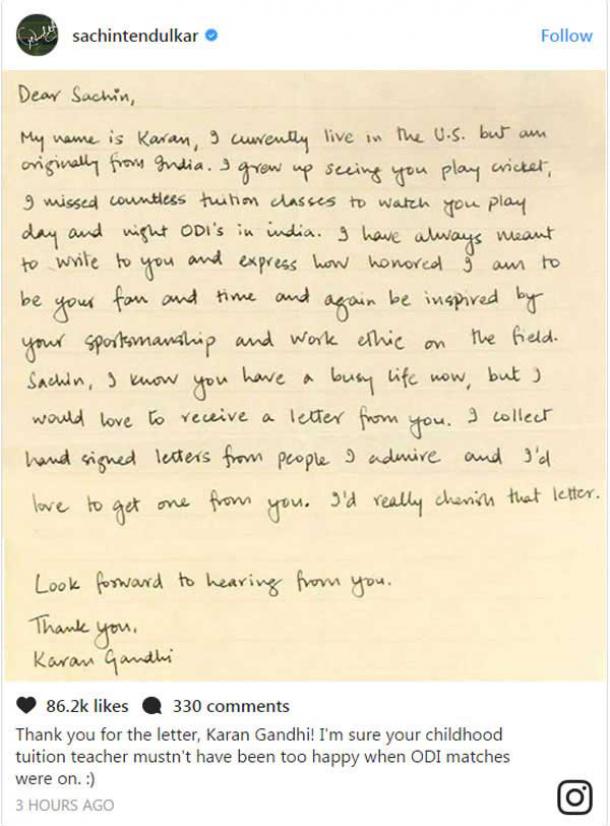 sachintendulkar
Follow
Dear Sachin,
My name is Karan, I currently live in the U.S. but am
originally from India. I grew up seeing you play cricket,
I missed countless tuition classes to watch you play
day and night ODI's in india. I have always meant
to write to you and express how honored I am to
be your fan and time and again be inspired by
your sportsmanship and work ethic on the field.
Sachin, I know you have a busy life now, but I
would love to receive a letter from you. I collect
hand signed letters from people I admire and I'd
love to get one from you. I'd really cherish that letter.
Look forward to hearing from you.
Thank you,
Karan Gandhi
86.2k likes 330 comments
Thank you for the letter, Karan Gandhi! I'm sure your childhood
tuition teacher mustn't have been too happy when ODI matches
were on. :)
3 HOURS AGO